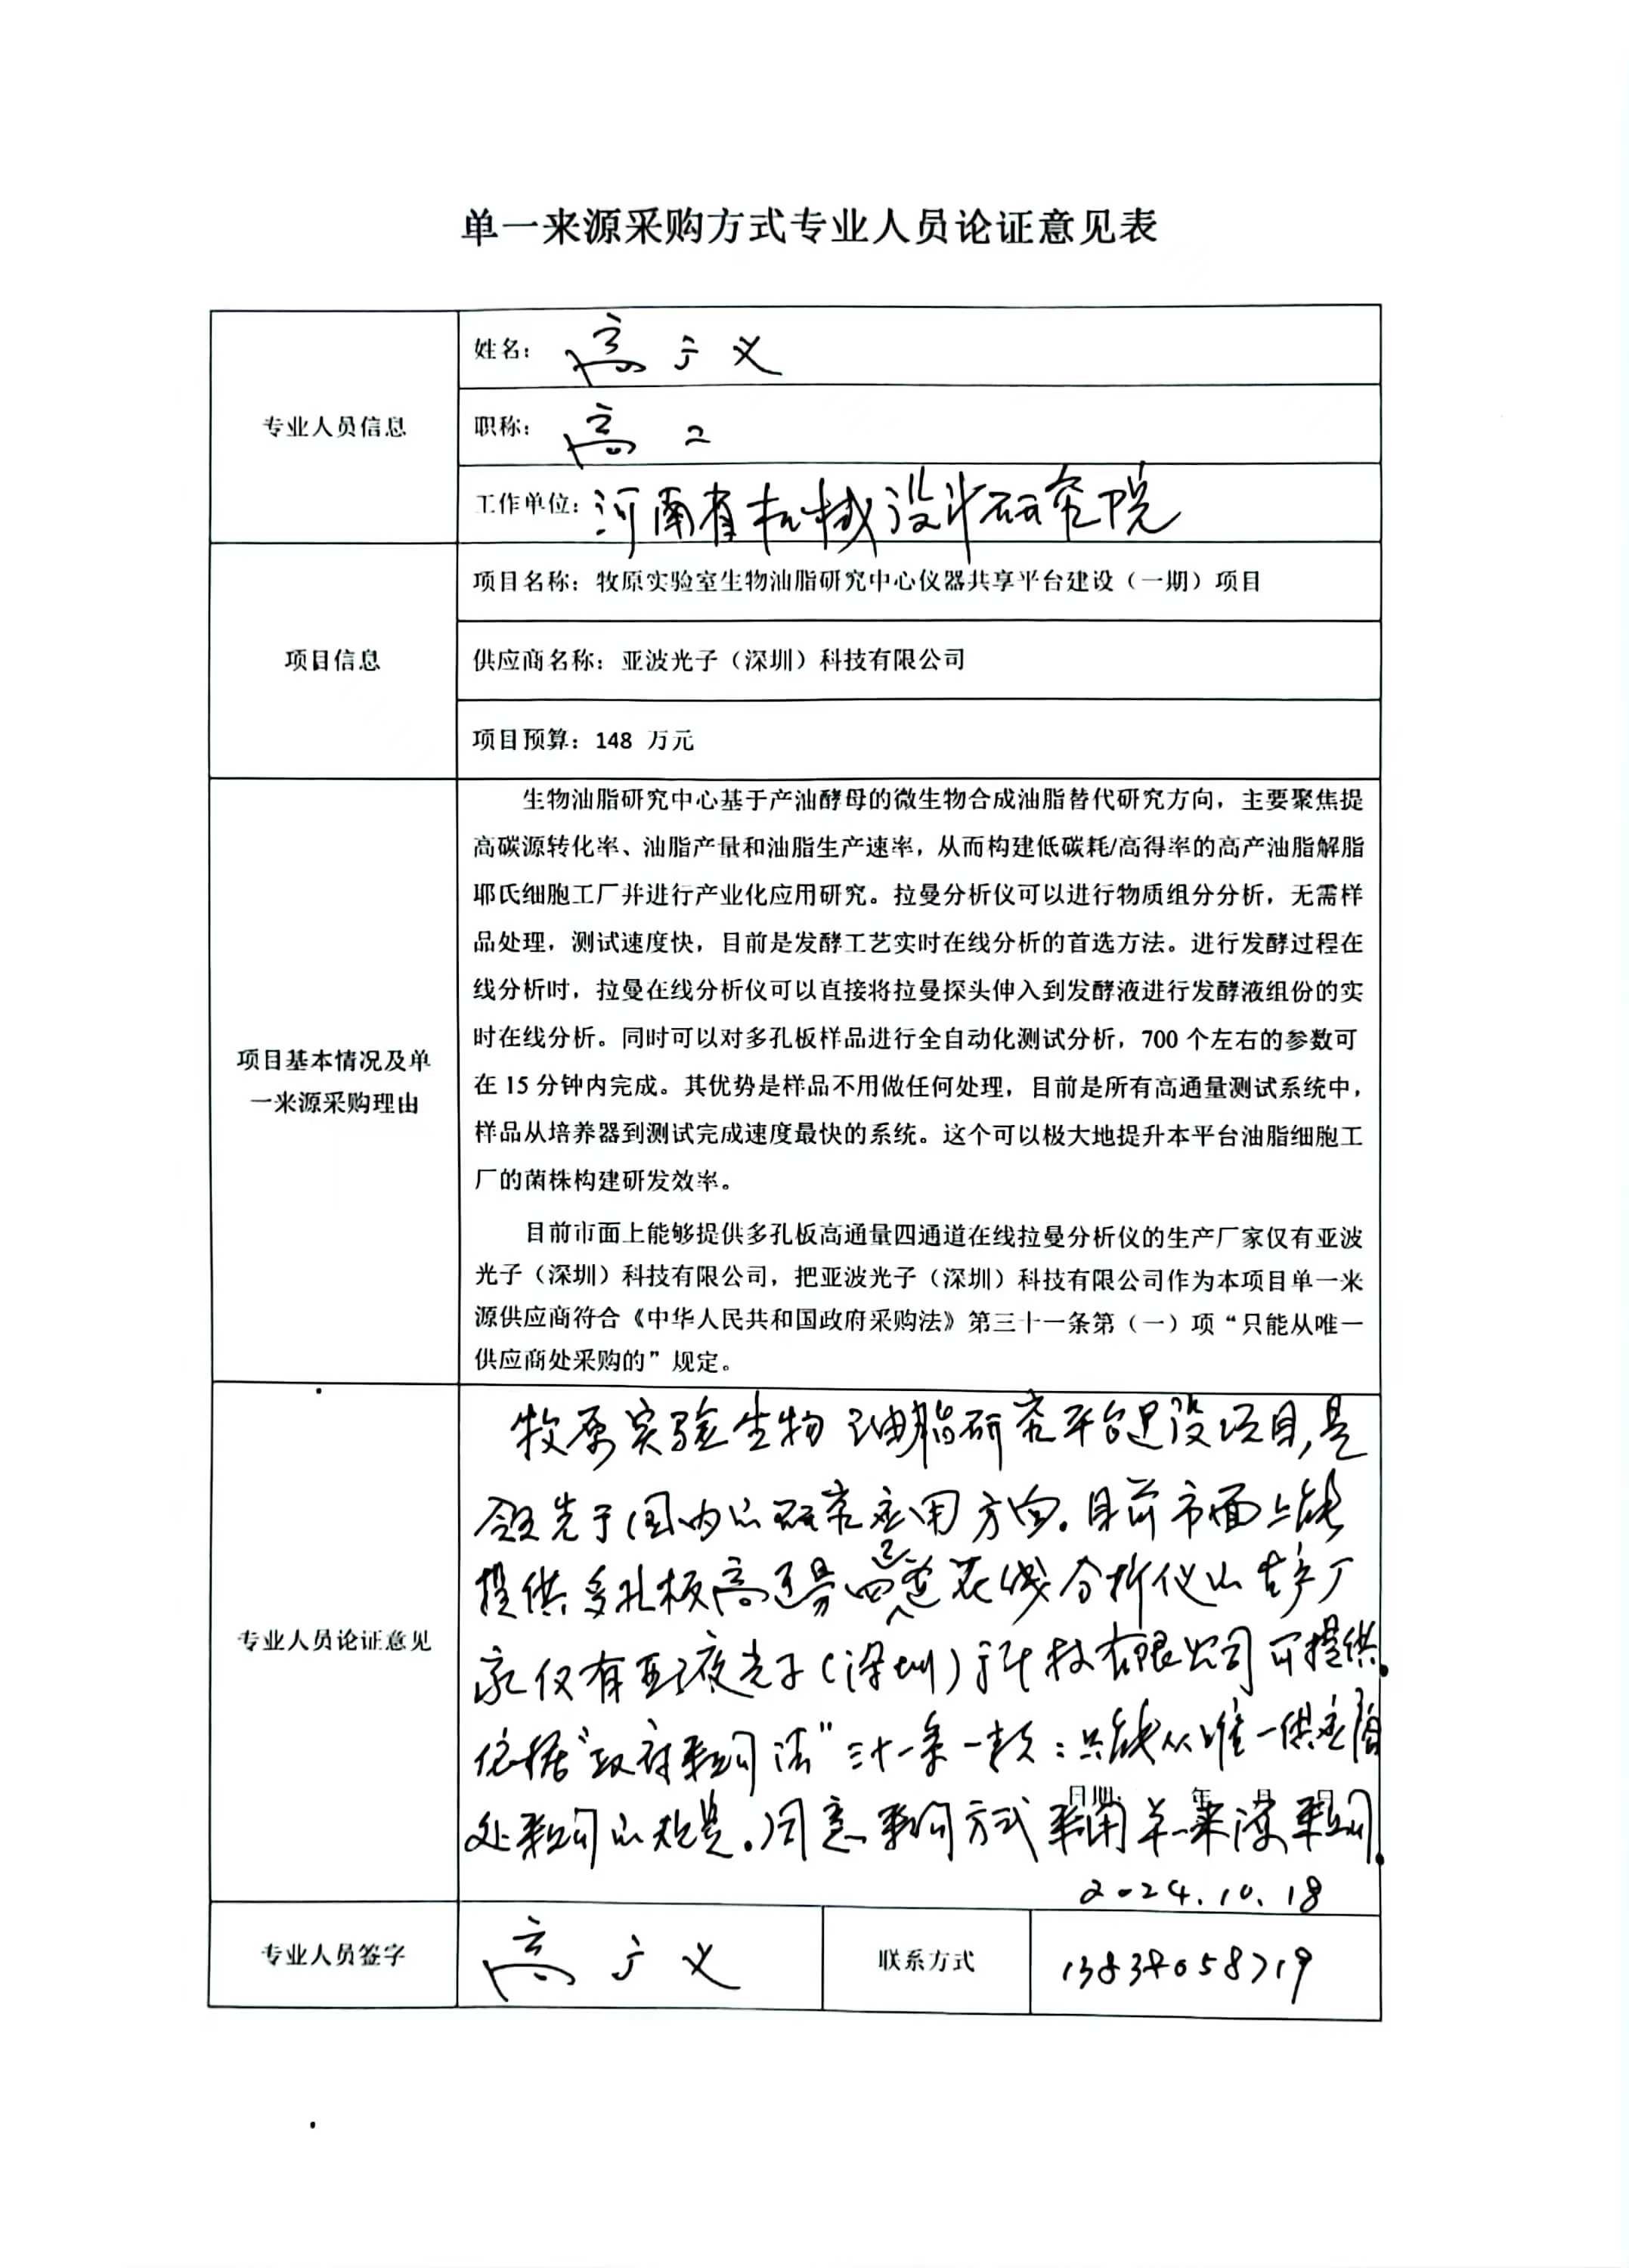 单一来源采购方式专业人员论证意见表
专业人员信息
姓名：高于义
职称：高工
工作单位：河南省机械设计研究院
项目信息
项目名称：牧原实验室生物油脂研究中心仪器共享平台建设（一期）项目
供应商名称：亚波光子（深圳）科技有限公司
项目预算：148 万元
项目基本情况及单
一来源采购理由
生物油脂研究中心基于产油酵母的微生物合成油脂替代研究方向，主要聚焦提
高碳源转化率、油脂产量和油脂生产速率，从而构建低碳耗/高得率的高产油脂解脂
耶氏细胞工厂并进行产业化应用研究。拉曼分析仪可以进行物质组分分析，无需样
品处理，测试速度快，目前是发酵工艺实时在线分析的首选方法。进行发酵过程在
线分析时，拉曼在线分析仪可以直接将拉曼探头伸入到发酵液进行发酵液组份的实
时在线分析。同时可以对多孔板样品进行全自动化测试分析，700 个左右的参数可
在 15 分钟内完成。其优势是样品不用做任何处理，目前是所有高通量测试系统中，
样品从培养器到测试完成速度最快的系统。这个可以极大地提升本平台油脂细胞工
厂的菌株构建研发效率。
目前市面上能够提供多孔板高通量四通道在线拉曼分析仪的生产厂家仅有亚波
光子（深圳）科技有限公司，把亚波光子（深圳）科技有限公司作为本项目单一来
源供应商符合《中华人民共和国政府采购法》第三十一条第（一）项“只能从唯一
供应商处采购的”规定。
专业人员论证意见
牧原实验生物油脂研究平台建设项目,是
领先于国内的研究应用方向。目前市面上能
提供多孔板高通量四通道在线分析仪的生产厂
家仅有亚波光子(深圳)科技有限公司可提供。
依据“政府采购法”三十一条一款：只能从唯一供应商
日期： 年 月 日
处采购的规定。同意采购方式采用单一来源采购。
2024.10.18
专业人员签字
高于义
联系方式
13838058719